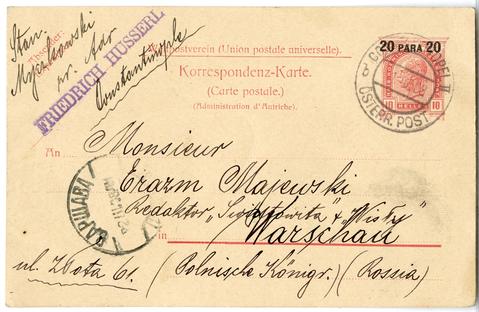 Stan.
nr. adr
FRIEDRICH HUSSERL
Constantinople
postverein (Union postale universelle).
Korrespondenz-Karte.
(Carte postale.)
(Administration d'Autriche).
20 PARA 20
10 HELLER 10
ÖSTERR. POST
An
Monsieur
Erazm Majewski
Redaktor „Światowita" & „Wisły"
in Warschau
ul. Złota 61. (Polnische Königr.) (Rossia)
ВАРШАВА